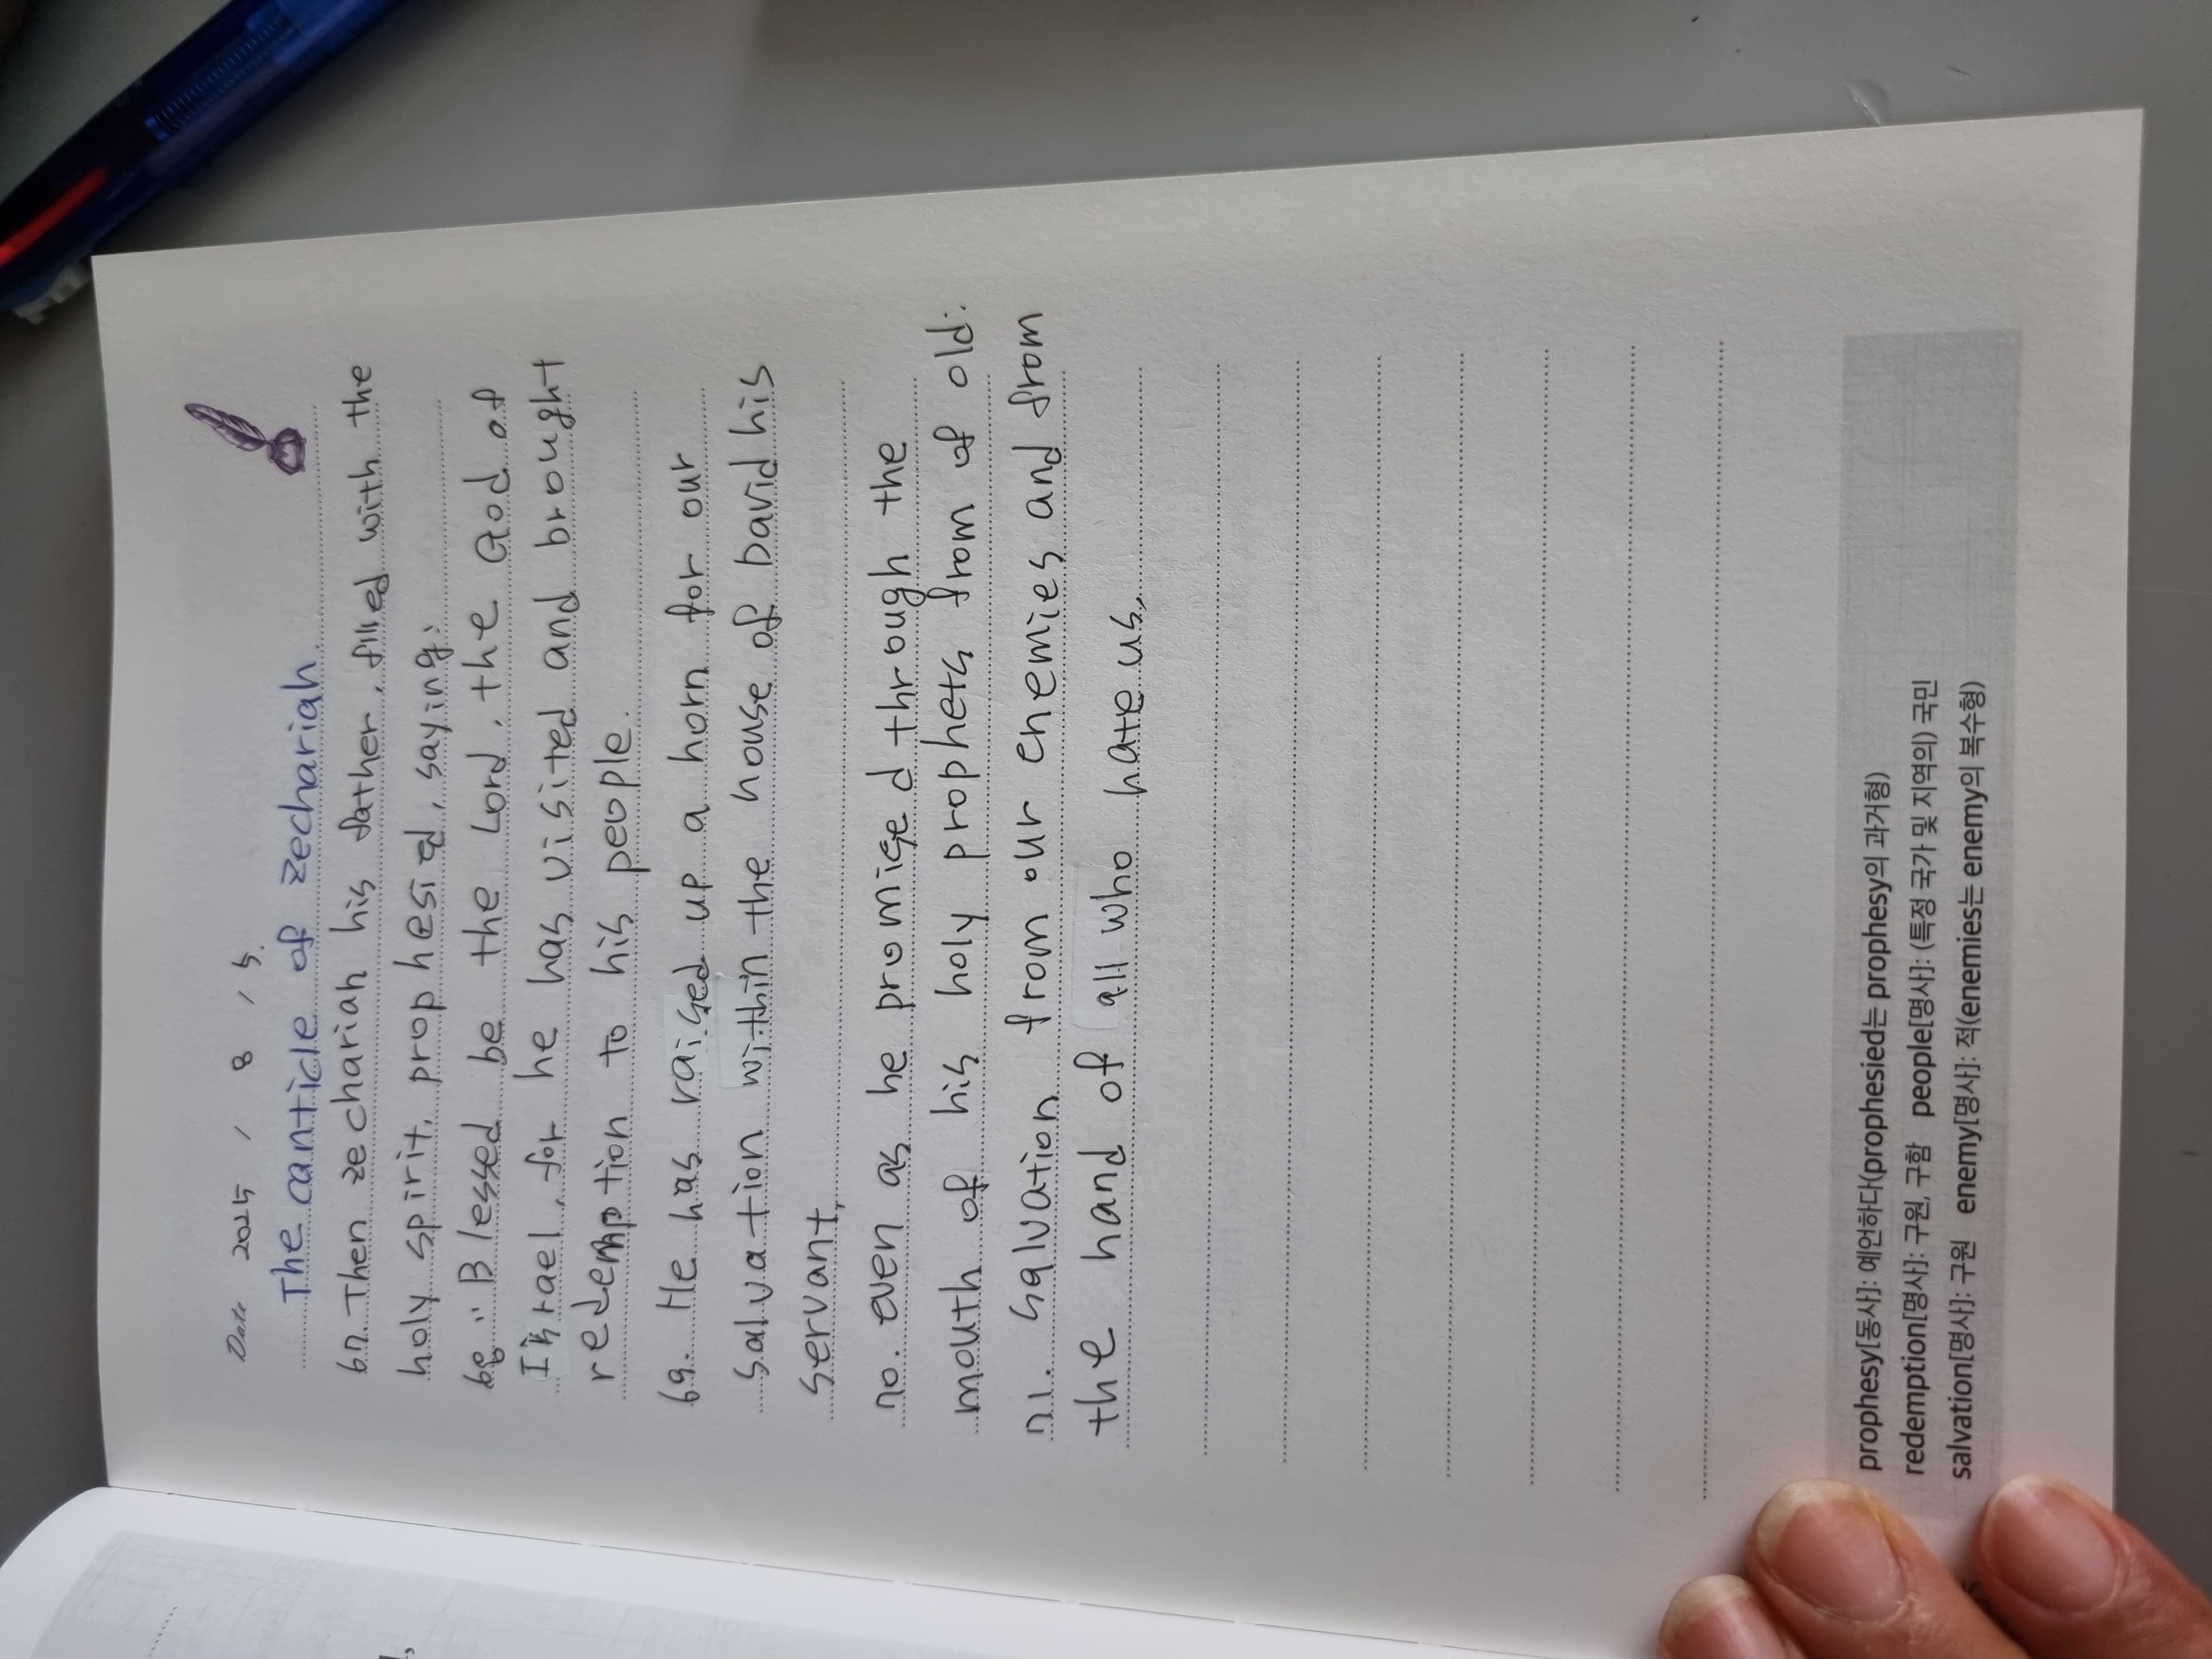 Date 2025 / 8 / 5.
The canticle of zechariah.
67. Then zechariah his father, filled with the
holy spirit, prophesied, saying:
68. "Blessed be the Lord, the God of
Israel, for he has visited and brought
redemption to his people.
69. He has raised up a horn for our
salvation within the house of David his
servant,
70. even as he promised through the
mouth of his holy prophets from of old:
71. salvation from our enemies and from
the hand of all who hate us,
prophesy[동사]: 예언하다(prophesied는 prophesy의 과거형)
redemption[명사]: 구원, 구함 people[명사]: (특정 국가 및 지역의) 국민
salvation[명사]: 구원 enemy[명사]: 적(enemies는 enemy의 복수형)